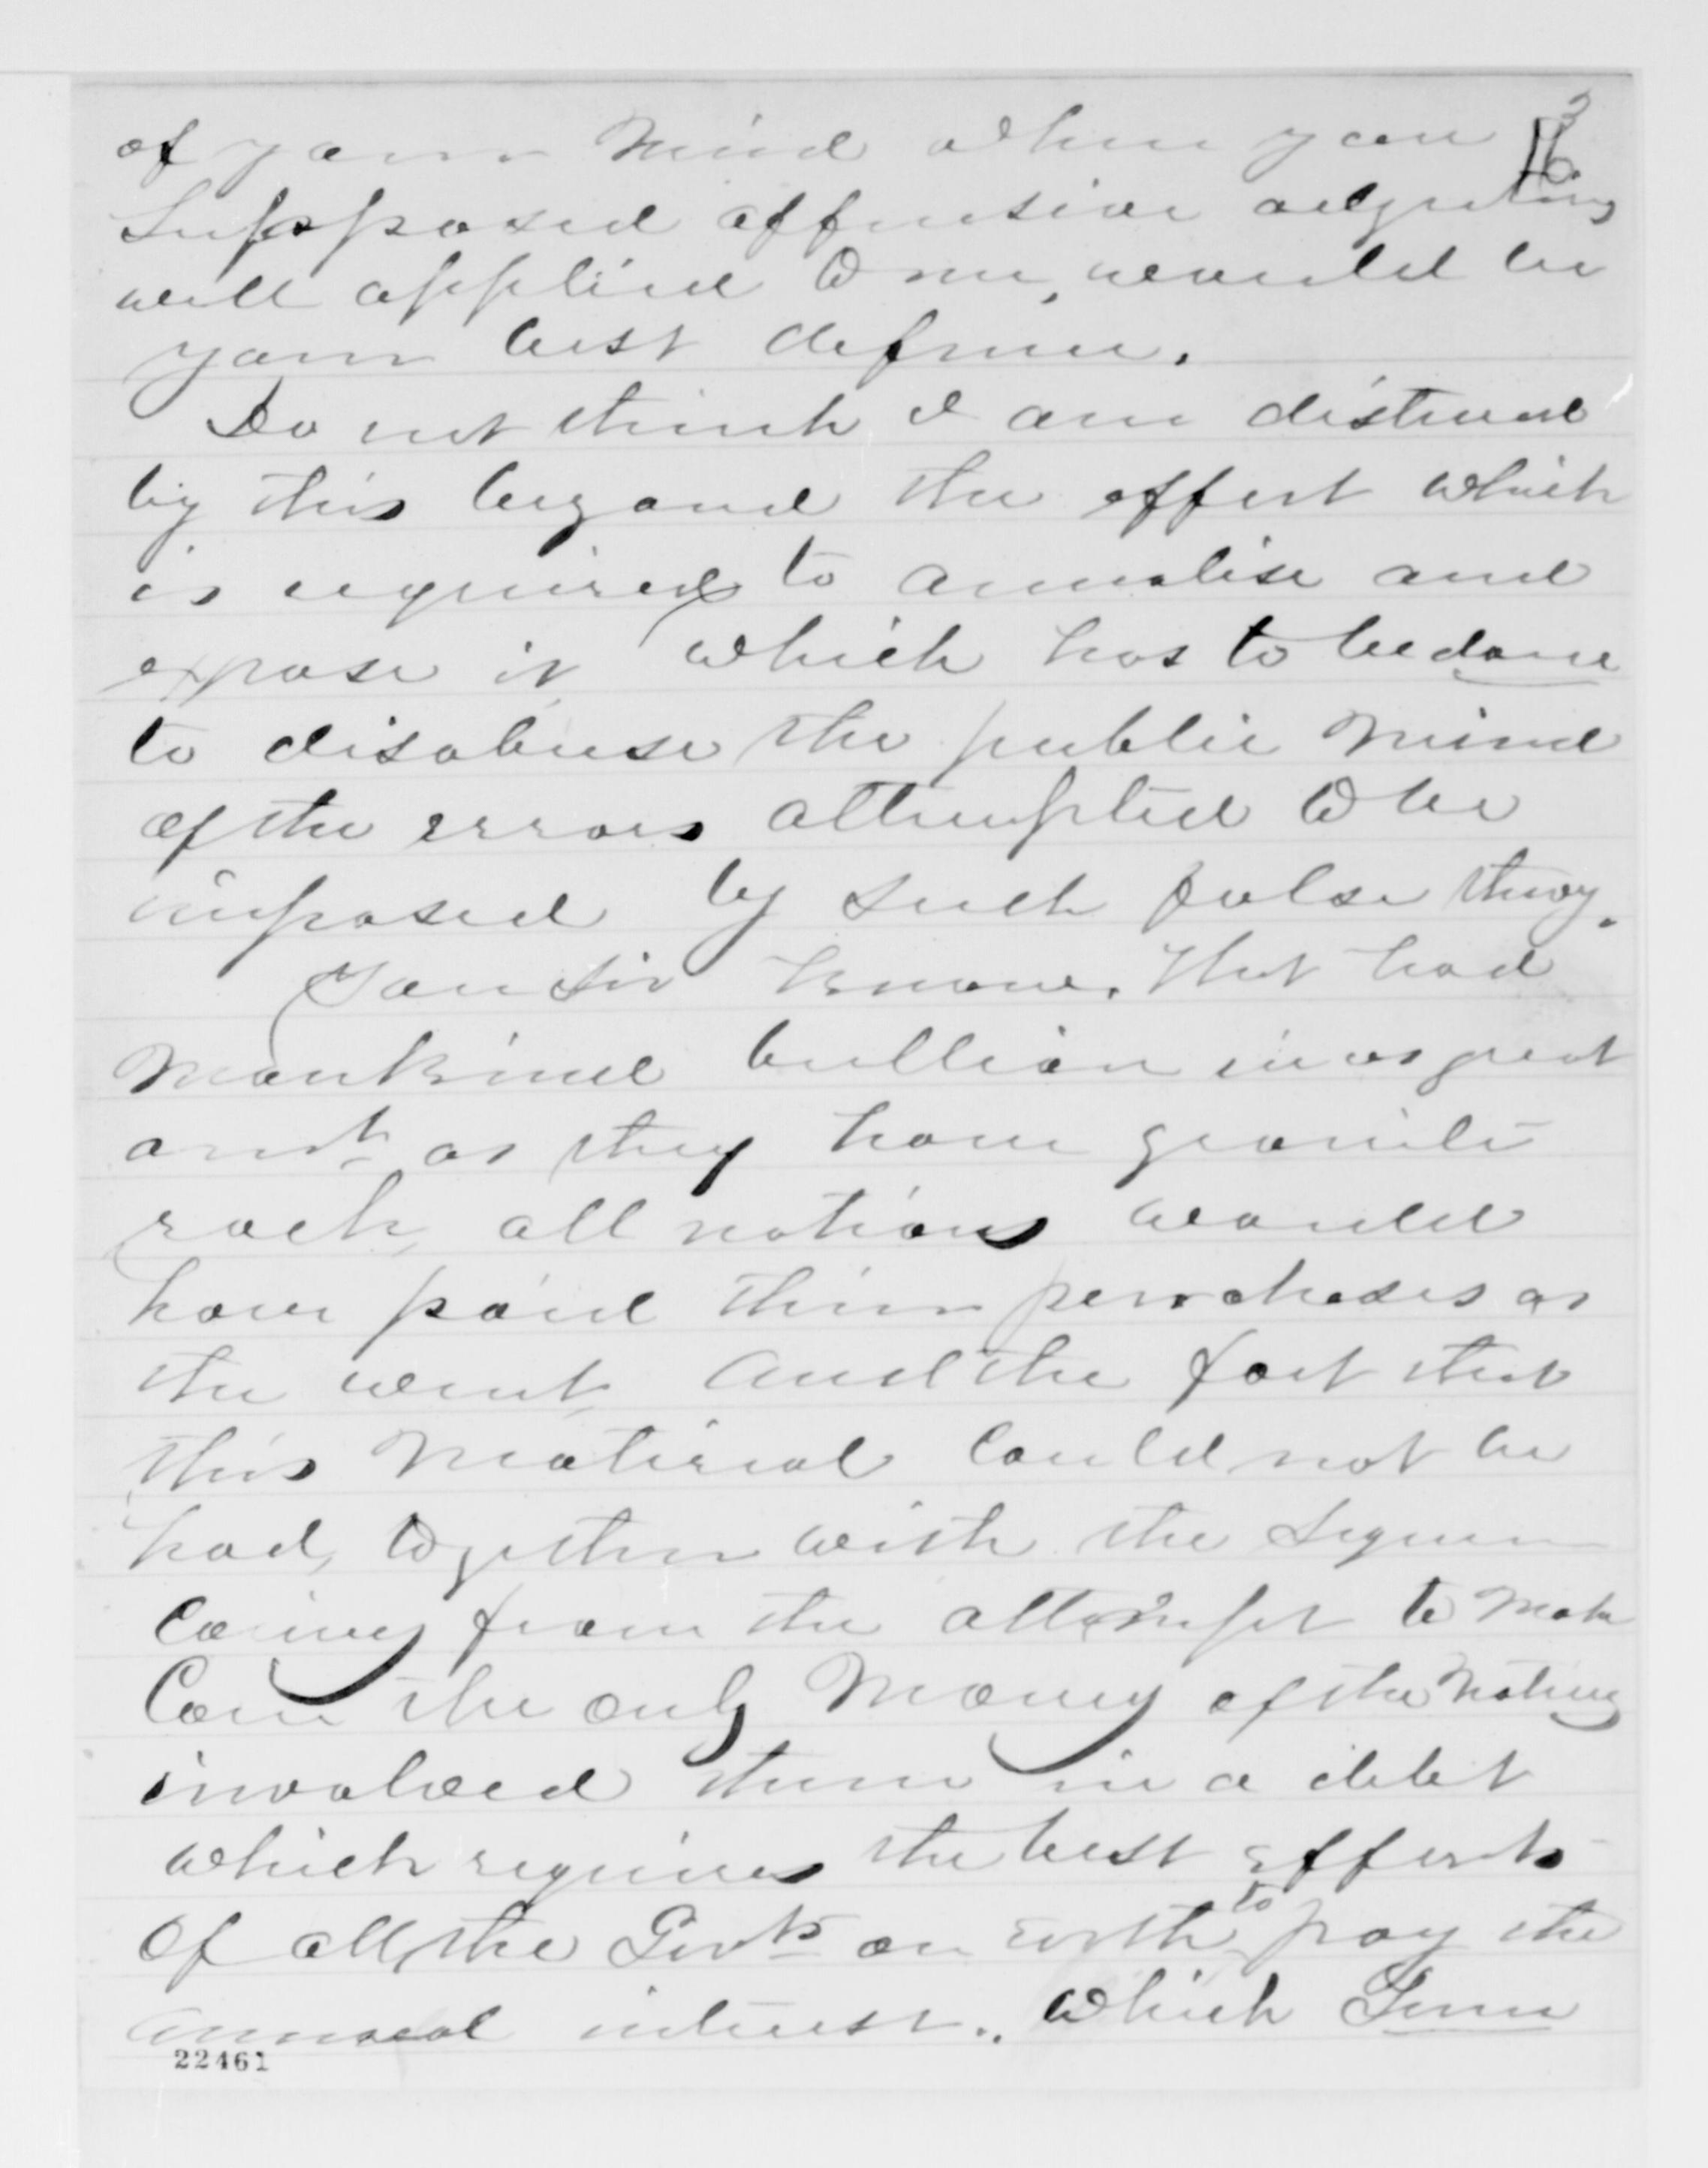 3
16
of your mind when you
supposed offensive adjectives
well applied to me, would be
your best defence.
Do not think I am disturbed
by this beyond the effort which
is required to annalise and
expose it, which has to be done
to disabuse the public mind
of the errors attempted to be
imposed by such false theory.
You Sir know, that had
mankind bullion in as great
amt. as they have granite
rock, all nations would
have paid their perchases as
the went, and the fact that
this material could not be
had, together with the
coming from the attempt to make
Coin the only money of the Nations
involved them in a debt
which requires the best efforts
of all the Govts on earth to pay the
annual interest.. which Sum
22461